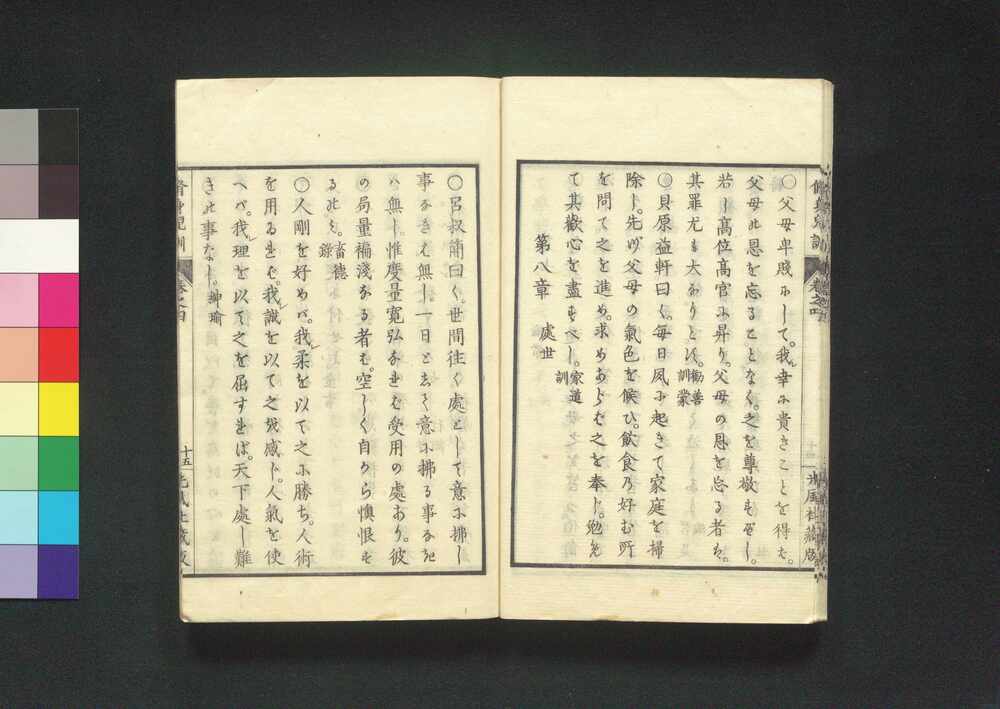 〇父母卑賤ニして。我レ幸ニ貴きことを得モ。
父母の恩を忘ることなく。之を尊敬すべし。
若し高位高官ニ昇り。父母の恩を忘る者ハ。
其罪尤も大なりとス。勸善訓蒙
〇貝原益軒曰く。毎日夙ニ起きて家庭を掃
除し。先ヅ父母の氣色を候ひ。飮食乃好む所
を問て之を進め。求めあらバ之を奉じ。勉め
て其歡心を盡すべし。家道訓
第八章　處世
〇呂叔簡曰く。世間往く處として意ニ拂し
事なきハ無し一日として意ニ拂る事なき
ハ無し惟度量寬弘なれば受用の處あり。彼
の局量褊淺なる者も。空しく自から懊恨す
るのミ。畜德錄
〇人剛を好めバ。我レ柔を以て之ニ勝ち。人術
を用るれば。我レ誠を以て之を感し。人氣を使
へバ。我レ理を以て之を屈すれば。天下處し難
きの事なし。紳瑜
卷之四
十五